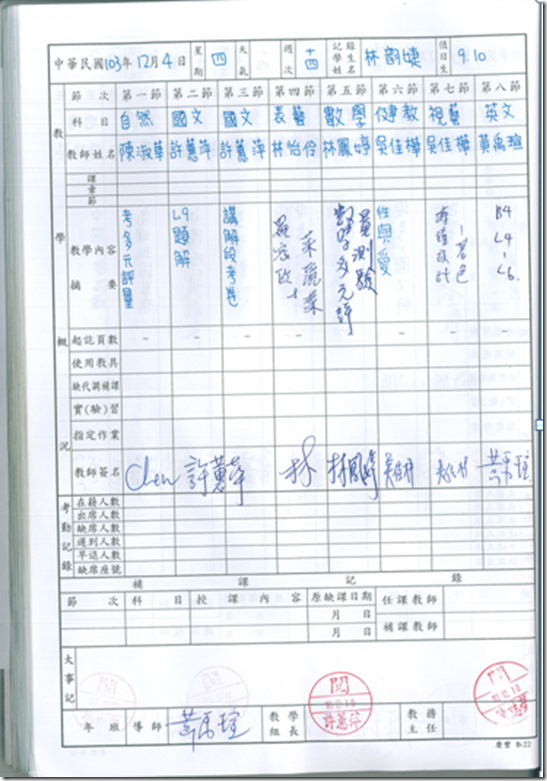 中華民國103年12月4日 星期 四 天氣 週次 十四 記錄學生姓名 林韵婕 值日生 9.10
節次 第一節 第二節 第三節 第四節 第五節 第六節 第七節 第八節
科目 自然 國文 國文 表藝 數學 健教 視藝 英文
教師姓名 陳淑華 許蕙萍 許蕙萍 林怡伶 林鳳婷 吳佳樺 吳佳樺 黃禹瑄
課
章
節
教學內容摘要 考多元評量 L9題解 講解段考卷 性與愛 B4 L4-L6
起訖頁數 - - - - - - - -
使用教具
缺代調補課
實(驗)習
指定作業
教師簽名 Chen 許蕙萍 林
教學概況
考勤記錄
在籍人數
出席人數
缺席人數
遲到人數
早退人數
缺席座號
補課記錄
節次 科目 授課內容 原缺課日期 任課教師
月 日
月 日 補課教師
大事記
閱 閱 閱 閱
許蕙萍
年 班 導師 教學組長 教務主任
慶豐 B-22